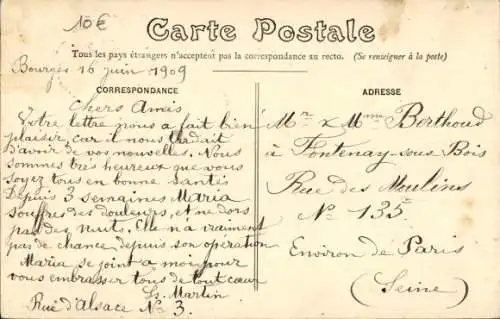 10€
Carte Postale
Tous les pays étrangers n'acceptent pas la correspondance au recto. (Se renseigner à la poste)
Bourges 16 juin 1909
CORRESPONDANCE
Chers Amis
Votre lettre nous a fait bien
plaisir, car il nous tardait
d'avoir de vos nouvelles. Nous
sommes très heureux que vous
soyez tous en bonne santés
Depuis 3 semaines Maria
souffre des douleurs, et ne dors
pas des nuits. Elle n'a vraiment
pas de chance depuis son opération
Maria se joint a moi pour
vous embrasser tous de tout cœur
Ls. Martin
Rue d'Alsace No 3.
ADRESSE
Mr & Mme Berthoud
à Fontenay-sous Bois
Rue des Moulins
No 135.
Environ de Paris
(Seine)